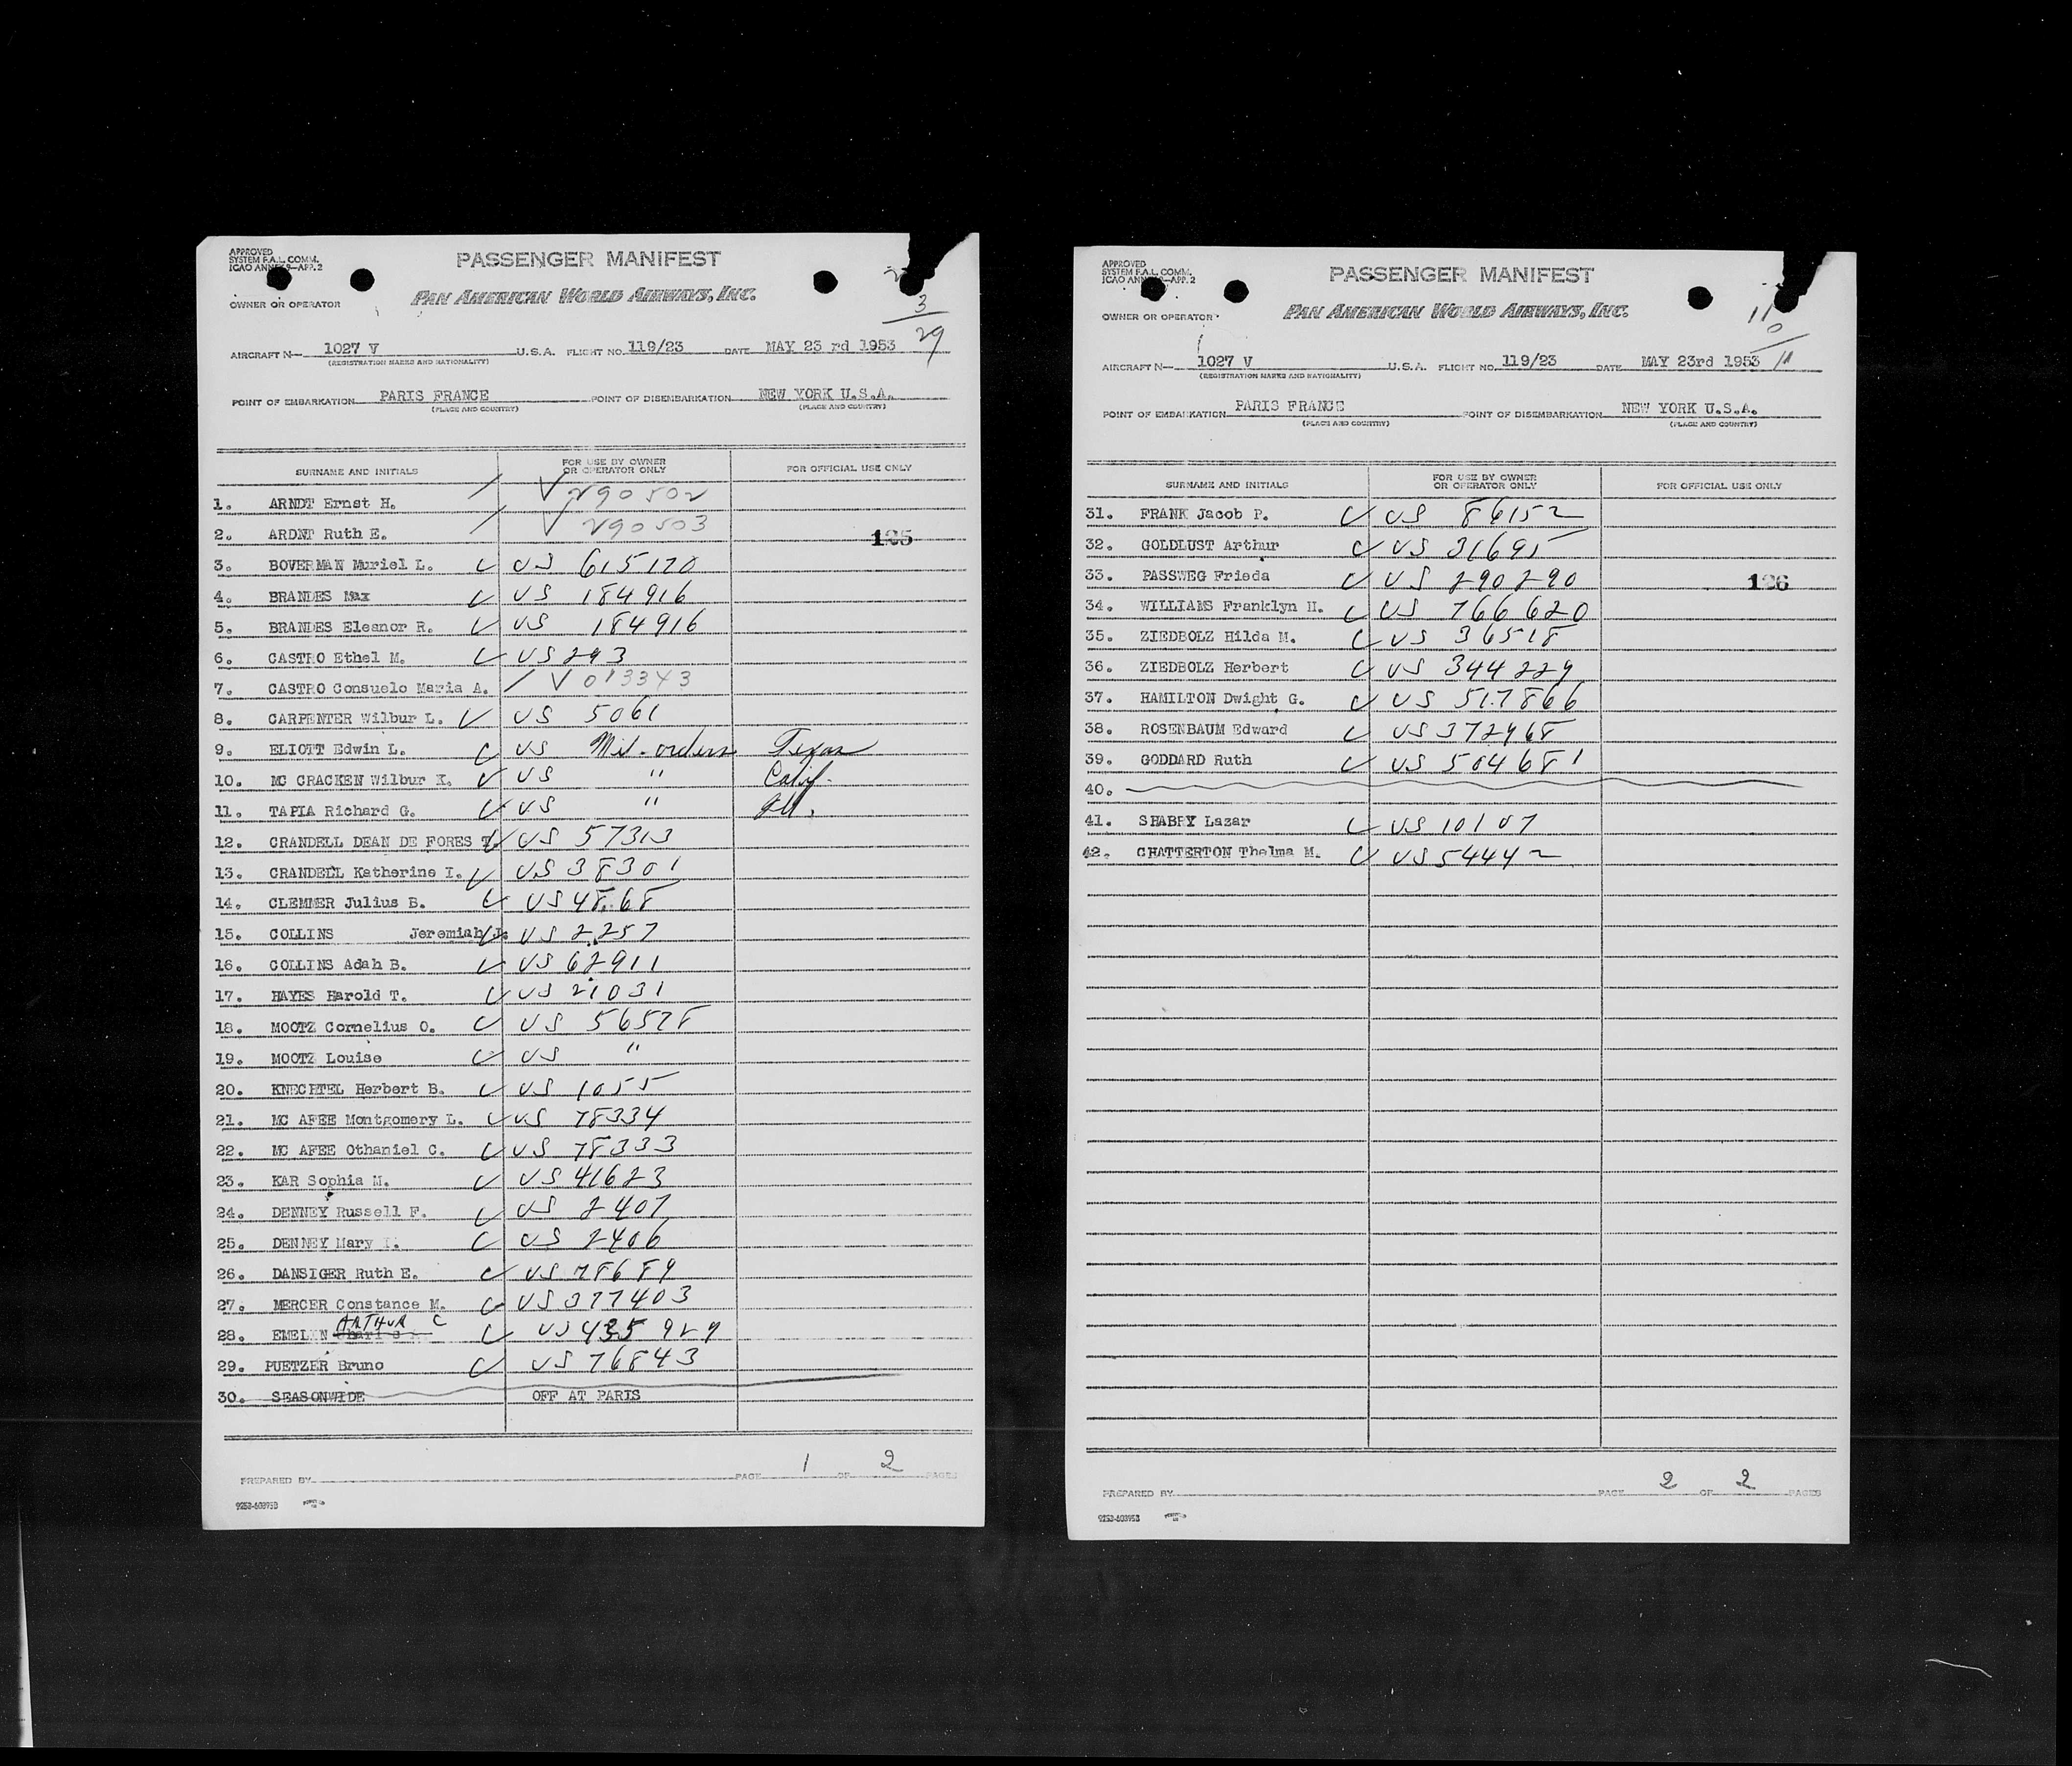 APPROVED
SYSTEM F.A.L. COMM.
ICAO ANNEX 9—APP. 2
PASSENGER MANIFEST
OWNER OR OPERATOR
PAN AMERICAN WORLD AIRWAYS, INC.
3
29
AIRCRAFT N— 1027 V U.S.A. FLIGHT NO. 119/23 DATE MAY 23 rd 1953
(REGISTRATION MARKS AND NATIONALITY)
POINT OF EMBARKATION PARIS FRANCE POINT OF DISEMBARKATION NEW YORK U.S.A.
(PLACE AND COUNTRY) (PLACE AND COUNTRY)
SURNAME AND INITIALS FOR USE BY OWNER OR OPERATOR ONLY FOR OFFICIAL USE ONLY
1. ARNDT Ernst H. V 290502
2. ARDNT Ruth E. V 290503 125
3. BOVERMAN Muriel L. US 615170
4. BRANDES Max US 184916
5. BRANDES Eleanor R. US 184916
6. CASTRO Ethel M. US 293
7. CASTRO Consuelo Maria A. V 013343
8. CARPENTER Wilbur L. US 5061
9. ELIOTT Edwin L. US Mil. orders Texas
10. MC CRACKEN Wilbur K. US " Calif.
11. TAPIA Richard G. US " Ill.
12. CRANDELL DEAN DE FORES T. US 57313
13. CRANDELL Katherine I. US 38301
14. CLEMMER Julius B. US 4868
15. COLLINS Jeremiah J. US 2257
16. COLLINS Adah B. US 62911
17. HAYES Harold T. US 21031
18. MOOTZ Cornelius O. US 56528
19. MOOTZ Louise US "
20. KNECHTEL Herbert B. US 1055
21. MC AFEE Montgomery L. US 78334
22. MC AFEE Othaniel C. US 78333
23. KAR Sophia M. US 41623
24. DENNEY Russell F. US 2407
25. DENNEY Mary I. US 2406
26. DANSIGER Ruth E. US 78689
27. MERCER Constance M. US 377403
28. EMELIN ARTHUR C US 435929
29. PUETZER Bruno US 76843
30. SEASONWIDE OFF AT PARIS
PREPARED BY PAGE 1 OF 2 PAGES
9253-603953
APPROVED
SYSTEM F.A.L. COMM.
ICAO ANNEX 9—APP. 2
PASSENGER MANIFEST
OWNER OR OPERATOR
PAN AMERICAN WORLD AIRWAYS, INC.
11
0
11
AIRCRAFT N— 1027 V U.S.A. FLIGHT NO. 119/23 DATE MAY 23rd 1953
(REGISTRATION MARKS AND NATIONALITY)
POINT OF EMBARKATION PARIS FRANCE POINT OF DISEMBARKATION NEW YORK U.S.A.
(PLACE AND COUNTRY) (PLACE AND COUNTRY)
SURNAME AND INITIALS FOR USE BY OWNER OR OPERATOR ONLY FOR OFFICIAL USE ONLY
31. FRANK Jacob P. US 86152
32. GOLDLUST Arthur US 31695
33. PASSWEG Frieda US 290290 126
34. WILLIAMS Franklyn H. US 766620
35. ZIEDBOLZ Hilda M. US 36518
36. ZIEDBOLZ Herbert US 344229
37. HAMILTON Dwight G. US 517866
38. ROSENBAUM Edward US 372968
39. GODDARD Ruth US 504681
40.
41. SHABRY Lazar US 10107
42. CHATTERTON Thelma M. US 54442
PREPARED BY PAGE 2 OF 2 PAGES
9253-603953